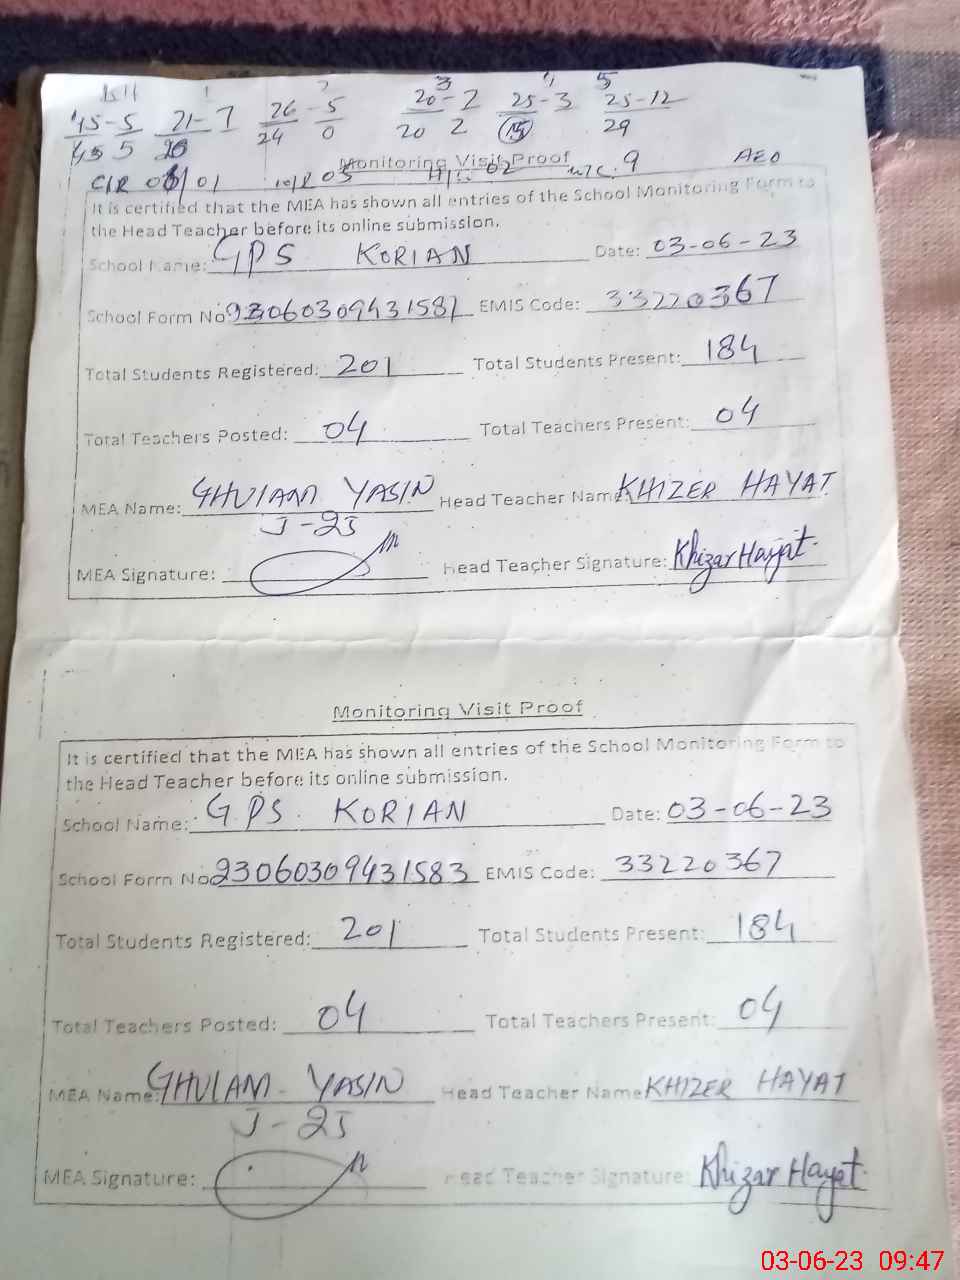 1 2 3 4 5
45-5 21-7 26-5 20-2 25-3 25-12
45 5 20 24 0 20 2 15 29
Monitoring Visit Proof AEO
C/R 01 03 02 9
It is certified that the MEA has shown all entries of the School Monitoring Form to
the Head Teacher before its online submission.
School Name: GPS KORIAN Date: 03-06-23
School Form No 23060309431581 EMIS Code: 33220367
Total Students Registered: 201 Total Students Present: 184
Total Teachers Posted: 04 Total Teachers Present: 04
MEA Name: GHULAM YASIN Head Teacher Name KHIZER HAYAT
J-25
MEA Signature: Head Teacher Signature: Khizar Hayat.
Monitoring Visit Proof
It is certified that the MEA has shown all entries of the School Monitoring Form to
the Head Teacher before its online submission.
School Name: G.PS. KORIAN Date: 03-06-23
School Form No 23060309431583 EMIS Code: 33220367
Total Students Registered: 201 Total Students Present: 184
Total Teachers Posted: 04 Total Teachers Present: 04
MEA Name: GHULAM YASIN Head Teacher Name KHIZER HAYAT
J-25
MEA Signature: Head Teacher Signature: Khizar Hayat.
03-06-23 09:47